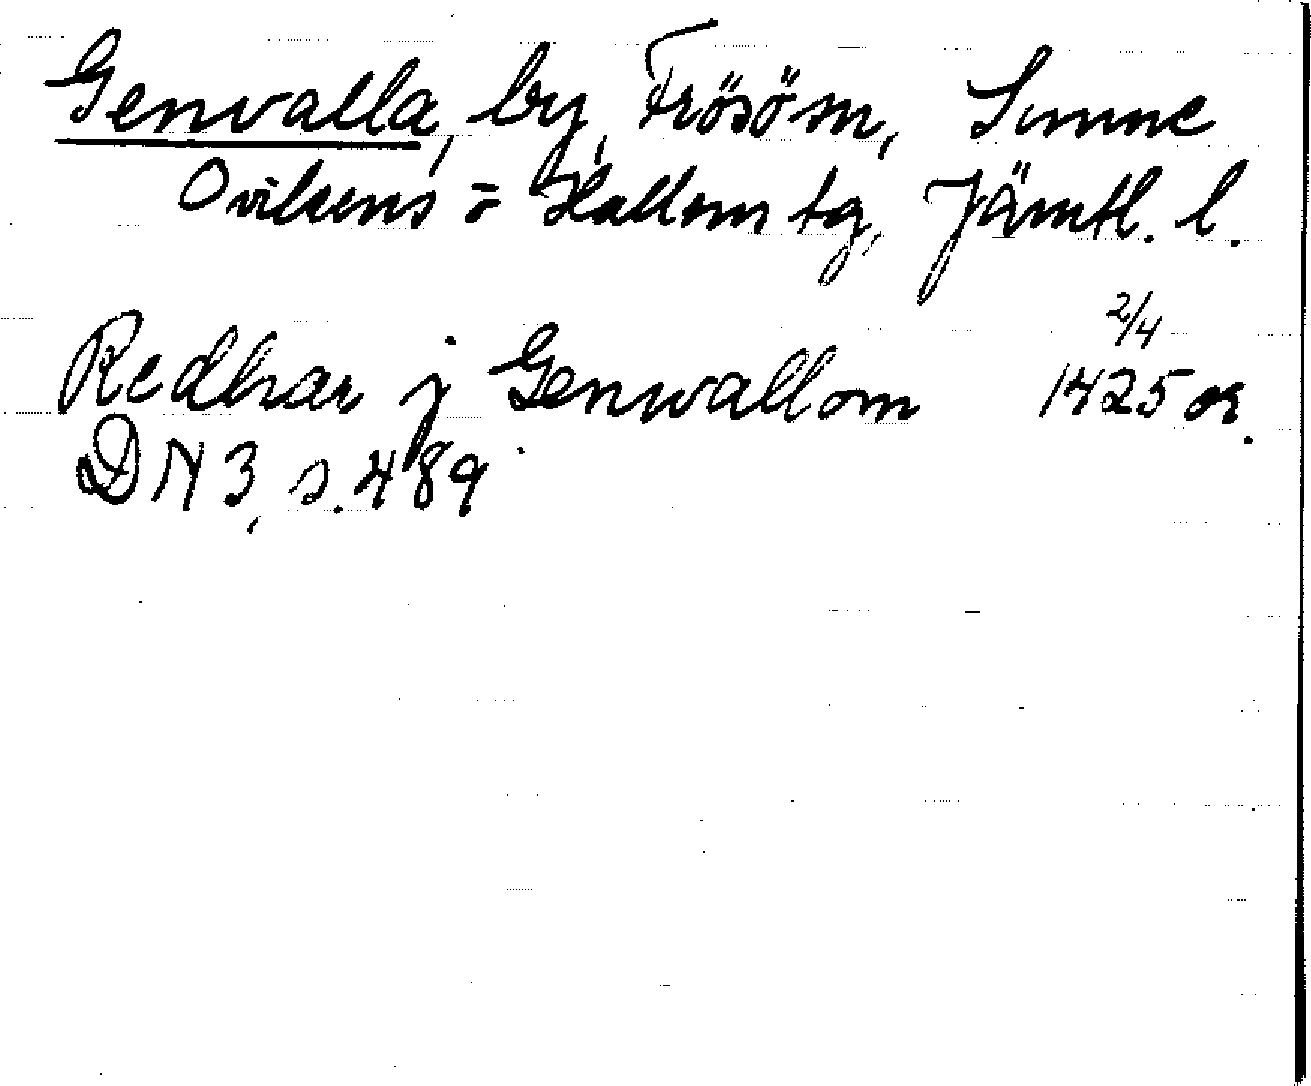 Genvalla, by, Frösö sn, Sunne
Oviksens o Hallens tg, Jämtl. l.
Redhar j Genwallom 2/4 1425 or.
DN 3, s. 489